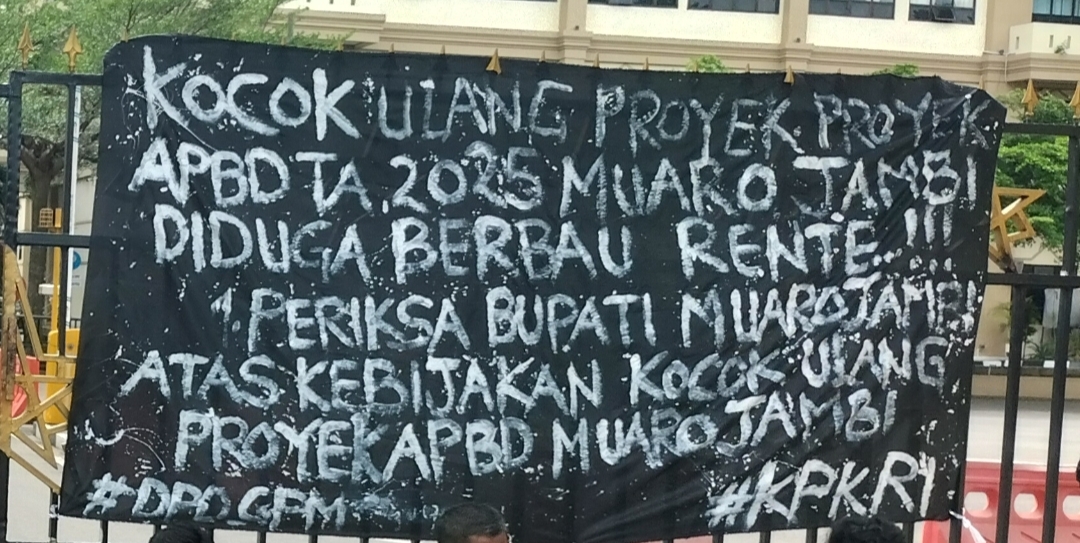 KOCOK ULANG PROYEK PROYEK
APBD TA.2025 MUARO JAMBI
DIDUGA BERBAU RENTE...!!!
1. PERIKSA BUPATI MUAROJAMBI
ATAS KEBIJAKAN KOCOK ULANG
PROYEK APBD MUARO JAMBI
#DPD_GPM
#KPKRI